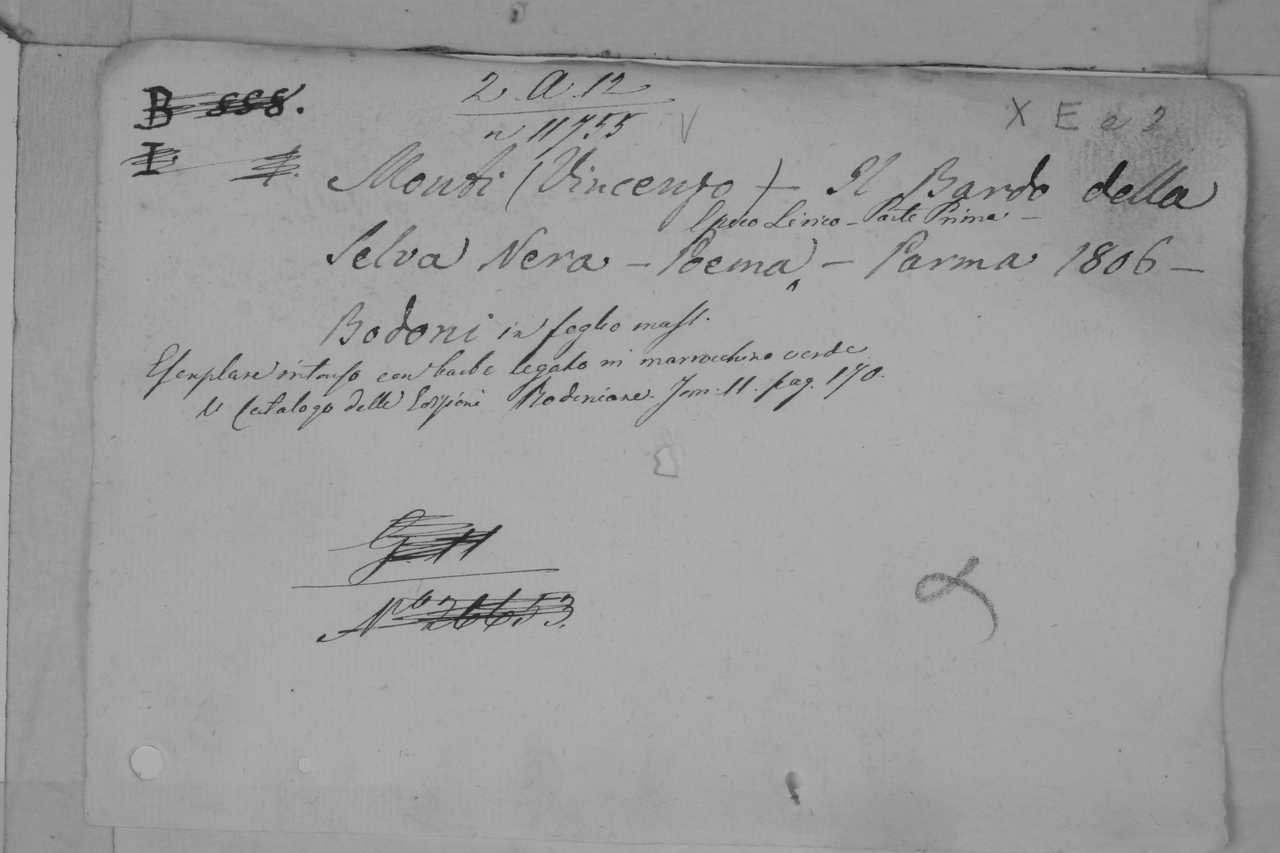 B 888.
2. A. 12
n 11755
V
X E a 2
I 4.
Monti (Vincenzo) - Il Bardo della
Epico Lirico - Parte Prima -
Selva Nera - Poema - Parma 1806 -
Bodoni in foglio mass.
Esemplare intonso con barbe legato in marrocchino verde
V Catalogo delle Edizioni Bodiniane. Tom. II. pag. 170.
G. H
No 26653.